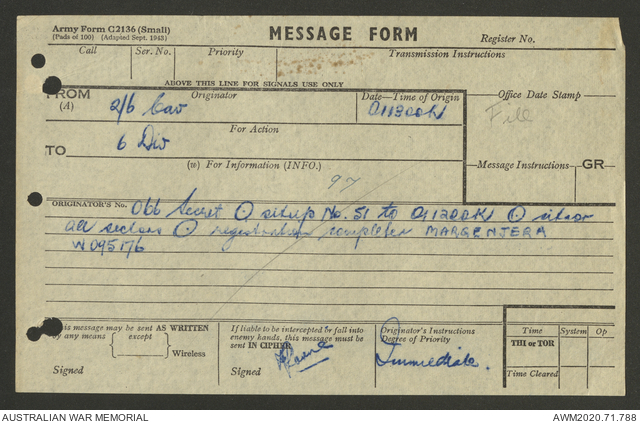 Army Form C2136 (Small)
(Pads of 100) (Adapted Sept. 1943)
MESSAGE FORM
Register No.
Call Ser. No. Priority Transmission Instructions
ABOVE THIS LINE FOR SIGNALS USE ONLY
FROM (A) Originator Date—Time of Origin Office Date Stamp
2/6 Cav 011300K File
For Action
TO 6 Div
(w) For Information (INFO.) Message Instructions GR
97
ORIGINATOR'S No. O66 Secret O sitrep No. 51 to 011200K O
all sectors O registration completed MARGENJERA
W095176
This message may be sent AS WRITTEN by any means except Wireless
Signed
If liable to be intercepted or fall into enemy hands, this message must be sent IN CIPHER
Signed
Originator's Instructions
Degree of Priority
Immediate.
Time System Op
THI or TOR
Time Cleared
AUSTRALIAN WAR MEMORIAL AWM2020.71.788